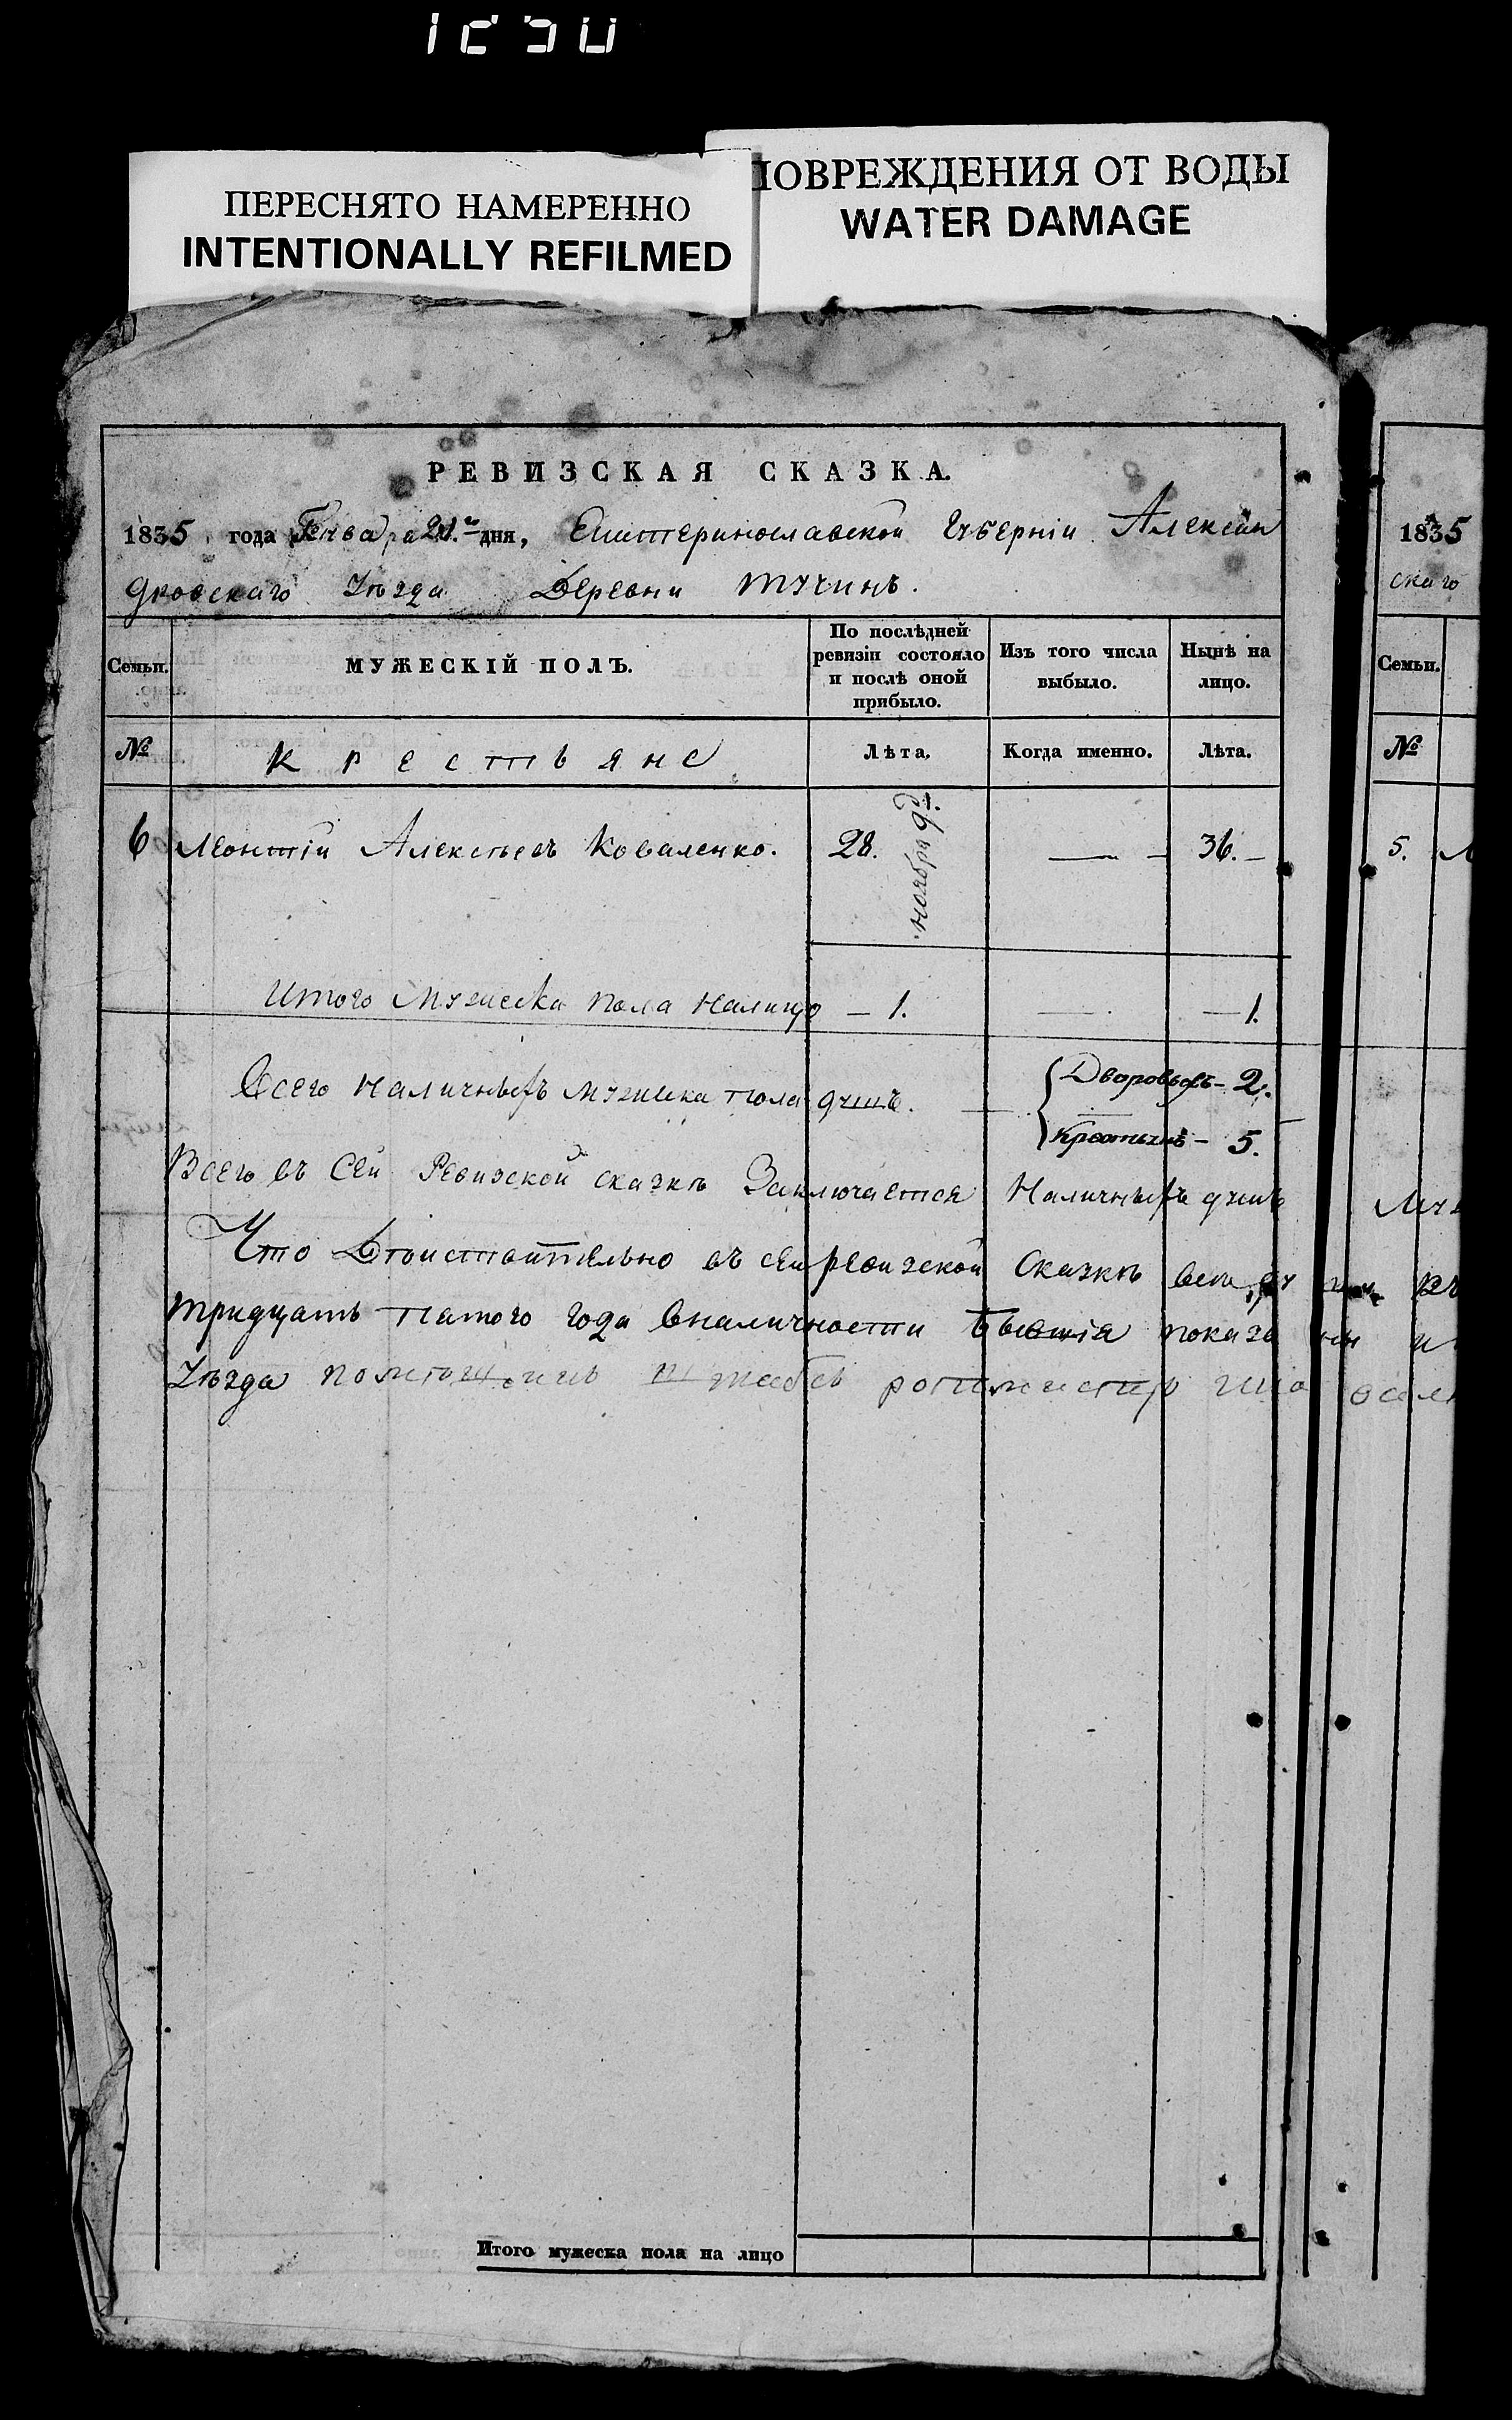 1250
ПЕРЕСНЯТО НАМЕРЕННО
INTENTIONALLY REFILMED
ПОВРЕЖДЕНИЯ ОТ ВОДЫ
WATER DAMAGE
РЕВИЗСКАЯ СКАЗКА.
1835 года Генваря 21.го дня, Екатеринославской Губерніи Алексан
дровскаго Уѣзда Деревни
Семьи. МУЖЕСКІЙ ПОЛЪ. По послѣдней ревизіи состояло и послѣ оной прибыло. Изъ того числа выбыло. Ныне на лицо.
№ Крестьяне Лѣта. Когда именно. Лѣта.
6 Леонтій Алексѣевъ Коваленко. 28. 36.
Итого Мужеска пола налицо 1. 1.
Всего наличныхъ мужеска пола душъ. Дворовыхъ 2.
Крестьянъ 5.
Всего въ Сей Ревизской сказкѣ Заключается Наличныхъ душъ
Что Дѣйствительно въ сей ревизской Сказкѣ все
тридцать пятого года вналичности бывшія показаны и
Уѣзда ротмистр
Итого мужеска пола на лицо
1835
скаго
Семьи.
№
5.